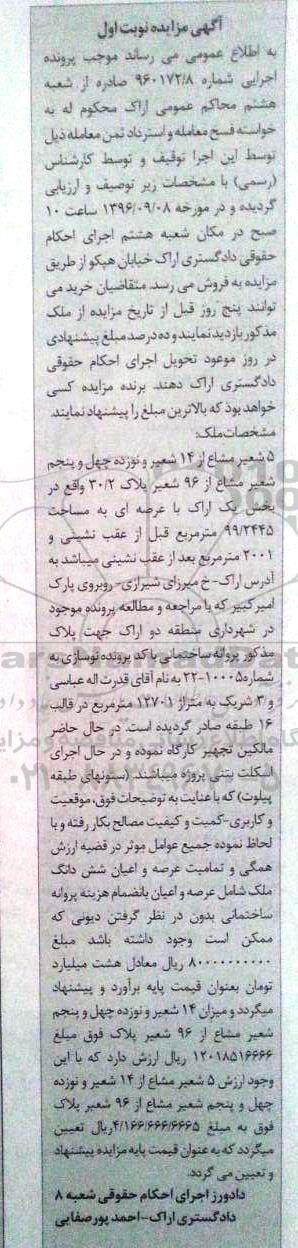 آگهی مزایده نوبت اول
به اطلاع عمومی می رساند موجب پرونده
اجرایی شماره ۹۶۰۱۷۲/۸ صادره از شعبه
هشتم محاکم عمومی اراک محکوم له به
خواسته فسخ معامله و استرداد ثمن معامله ذیل
توسط این اجرا توقیف و توسط کارشناس
(رسمی) با مشخصات زیر توصیف و ارزیابی
گردیده و در مورخه ۱۳۹۶/۰۹/۰۸ ساعت ۱۰
صبح در مکان شعبه هشتم اجرای احکام
حقوقی دادگستری اراک خیابان هپکو از طریق
مزایده به فروش می رسد. متقاضیان خرید می
توانند پنج روز قبل از تاریخ مزایده از ملک
مذکور بازدید نمایند و ده درصد مبلغ پیشنهادی
در روز موعود تحویل اجرای احکام حقوقی
دادگستری اراک دهند. برنده مزایده کسی
خواهد بود که بالاترین مبلغ را پیشنهاد نمایند.
مشخصات ملک:
۵ شعیر مشاع از ۱۴ شعیر و نوزده چهل و پنجم
شعیر مشاع از ۹۶ شعیر پلاک ۳۰/۲ واقع در
بخش یک اراک با عرصه ای به مساحت
۹۹/۲۴۴۵ مترمربع قبل از عقب نشینی و
۲۰۰۱ مترمربع بعد از عقب نشینی میباشد به
آدرس اراک- خ میرزای شیرازی- روبروی پارک
امیرکبیر که با مراجعه و مطالعه پرونده موجود
در شهرداری منطقه دو اراک جهت پلاک
مذکور پروانه ساختمانی با کد پرونده نوسازی به
شماره ۱۰۰۰۵-۲۲ به نام آقای قدرت اله عباسی
و ۳ شریک به متراژ ۱۲۷۰۱ مترمربع در قالب
۱۶ طبقه صادر گردیده است. در حال حاضر
مالکین تجهیز کارگاه نموده و در حال اجرای
اسکلت بتنی پروژه میباشند. (ستونهای طبقه
پیلوت) که با عنایت به توضیحات فوق، موقعیت
و کاربری-کمیت و کیفیت مصالح بکار رفته و با
لحاظ نموده جمیع عوامل موثر در قضیه ارزش
همگی و تمامیت عرصه و اعیان شش دانگ
ملک شامل عرصه و اعیان بانضمام هزینه پروانه
ساختمانی بدون در نظر گرفتن دیونی که
ممکن است وجود داشته باشد مبلغ
۸۰۰۰۰۰۰۰۰۰۰ ریال معادل هشت میلیارد
تومان بعنوان قیمت پایه برآورد و پیشنهاد
میگردد و میزان ۱۴ شعیر و نوزده چهل و پنجم
شعیر مشاع از ۹۶ شعیر پلاک فوق مبلغ
۱۲۰۱۸۵۱۶۶۶۶ ریال ارزش دارد که با این
وجود ارزش ۵ شعیر مشاع از ۱۴ شعیر و نوزده
چهل و پنجم شعیر مشاع از ۹۶ شعیر پلاک
فوق به مبلغ ۴/۱۶۶/۶۶۶/۶۶۶۵ریال تعیین
میگردد که به عنوان قیمت پایه مزایده پیشنهاد
و تعیین می گردد.
دادورز اجرای احکام حقوقی شعبه ۸
دادگستری اراک-احمد پورصفایی